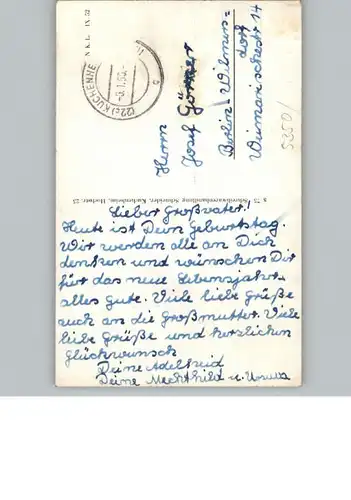 N.K.L. IX 52
(22c) KUCHENHE
-5.1.60.-
c
Herrn
Josef Görtner
Berlin-Wilmers=
dorf
Weimarischestr 14
5350/
S 73 Schreibwarenhandlung Schneider, Kuchenheim, Hochstr. 23
Lieber Großvater!
Heute ist Dein Geburtstag.
Wir werden alle an Dich
denken und wünschen Dir
für das neue Lebensjahr
alles gute. Viele liebe Grüße
auch an die Großmutter. Viele
liebe Grüße und herzlichen
glückwunsch
Deine Adelheid
Deine Mechthild u. Ursula